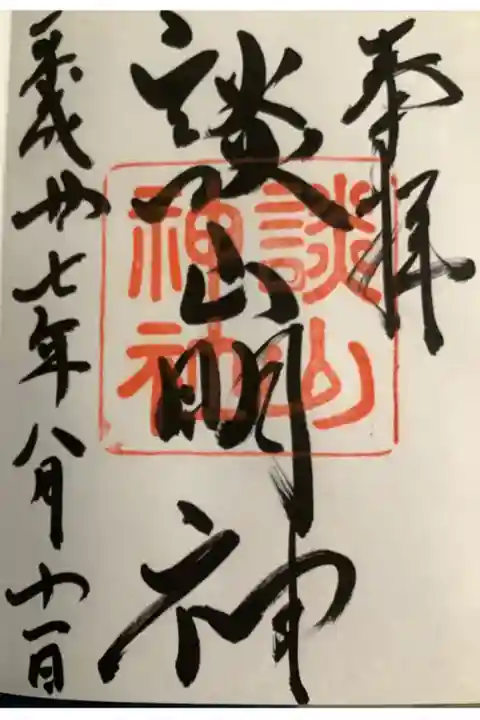 奉拝
談山明神
談山
神社
平成廿七年八月十一日